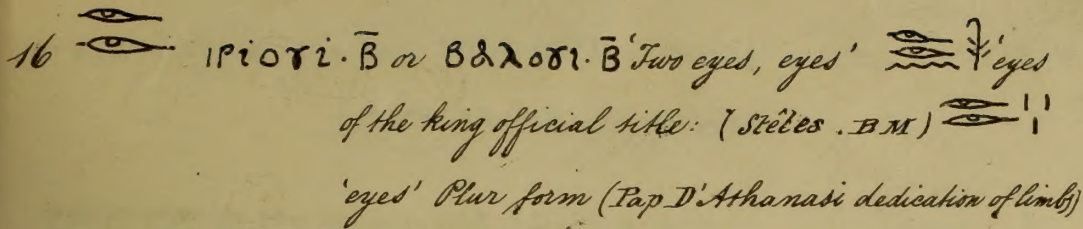 16 𓁹𓁹 ιριογι.B̄ or Βαλογι.B̄ 'Two eyes, eyes' 'eyes
of the king official title: (Stêles. BM)
'eyes' Plur form (Pap D'Athanasi dedication of limbs)